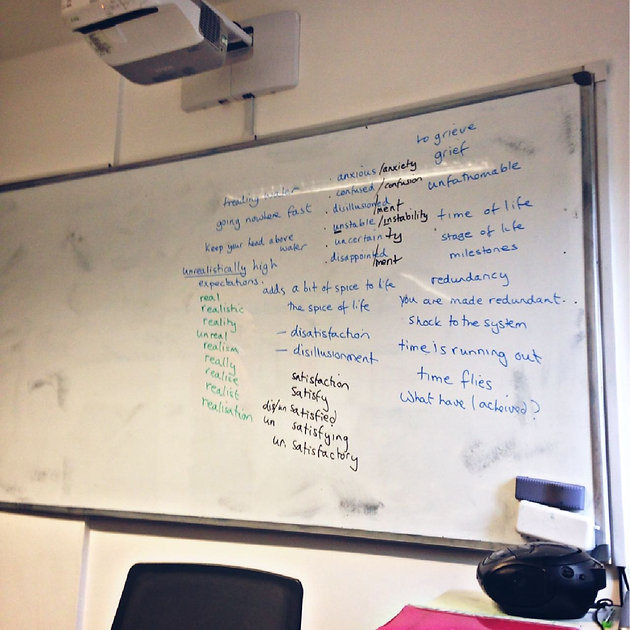 treading water
going nowhere fast
keep your head above
water
unrealistically high
expectations.
real
realistic
reality
unreal
realism
really
realise
realist
realisation
. anxious/anxiety
. confused/confusion
. disillusioned/ment
. unstable/instability
. uncertain}ty
. disappointed/ment
adds a bit of spice to life
the spice of life
- disatisfaction
- disillusionment
satisfaction
satisfy
dis/un satisfied
un satisfying
un. satisfactory
to grieve
grief
unfathomable
time of life
stage of life
milestones
redundancy
you are made redundant..
shock to the system
time is running out
time flies
What have I acheived?